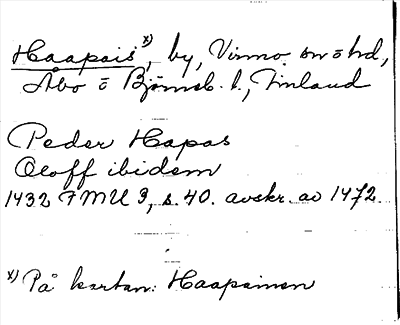 Haapais x), by, Virmo sn o hd,
Åbo o Björneb. l., Finland
Peder Hapas
Oloff ibidem
1432 FMU 3, s. 40. avskr. av 1472.
x) På kartan: Haapainen